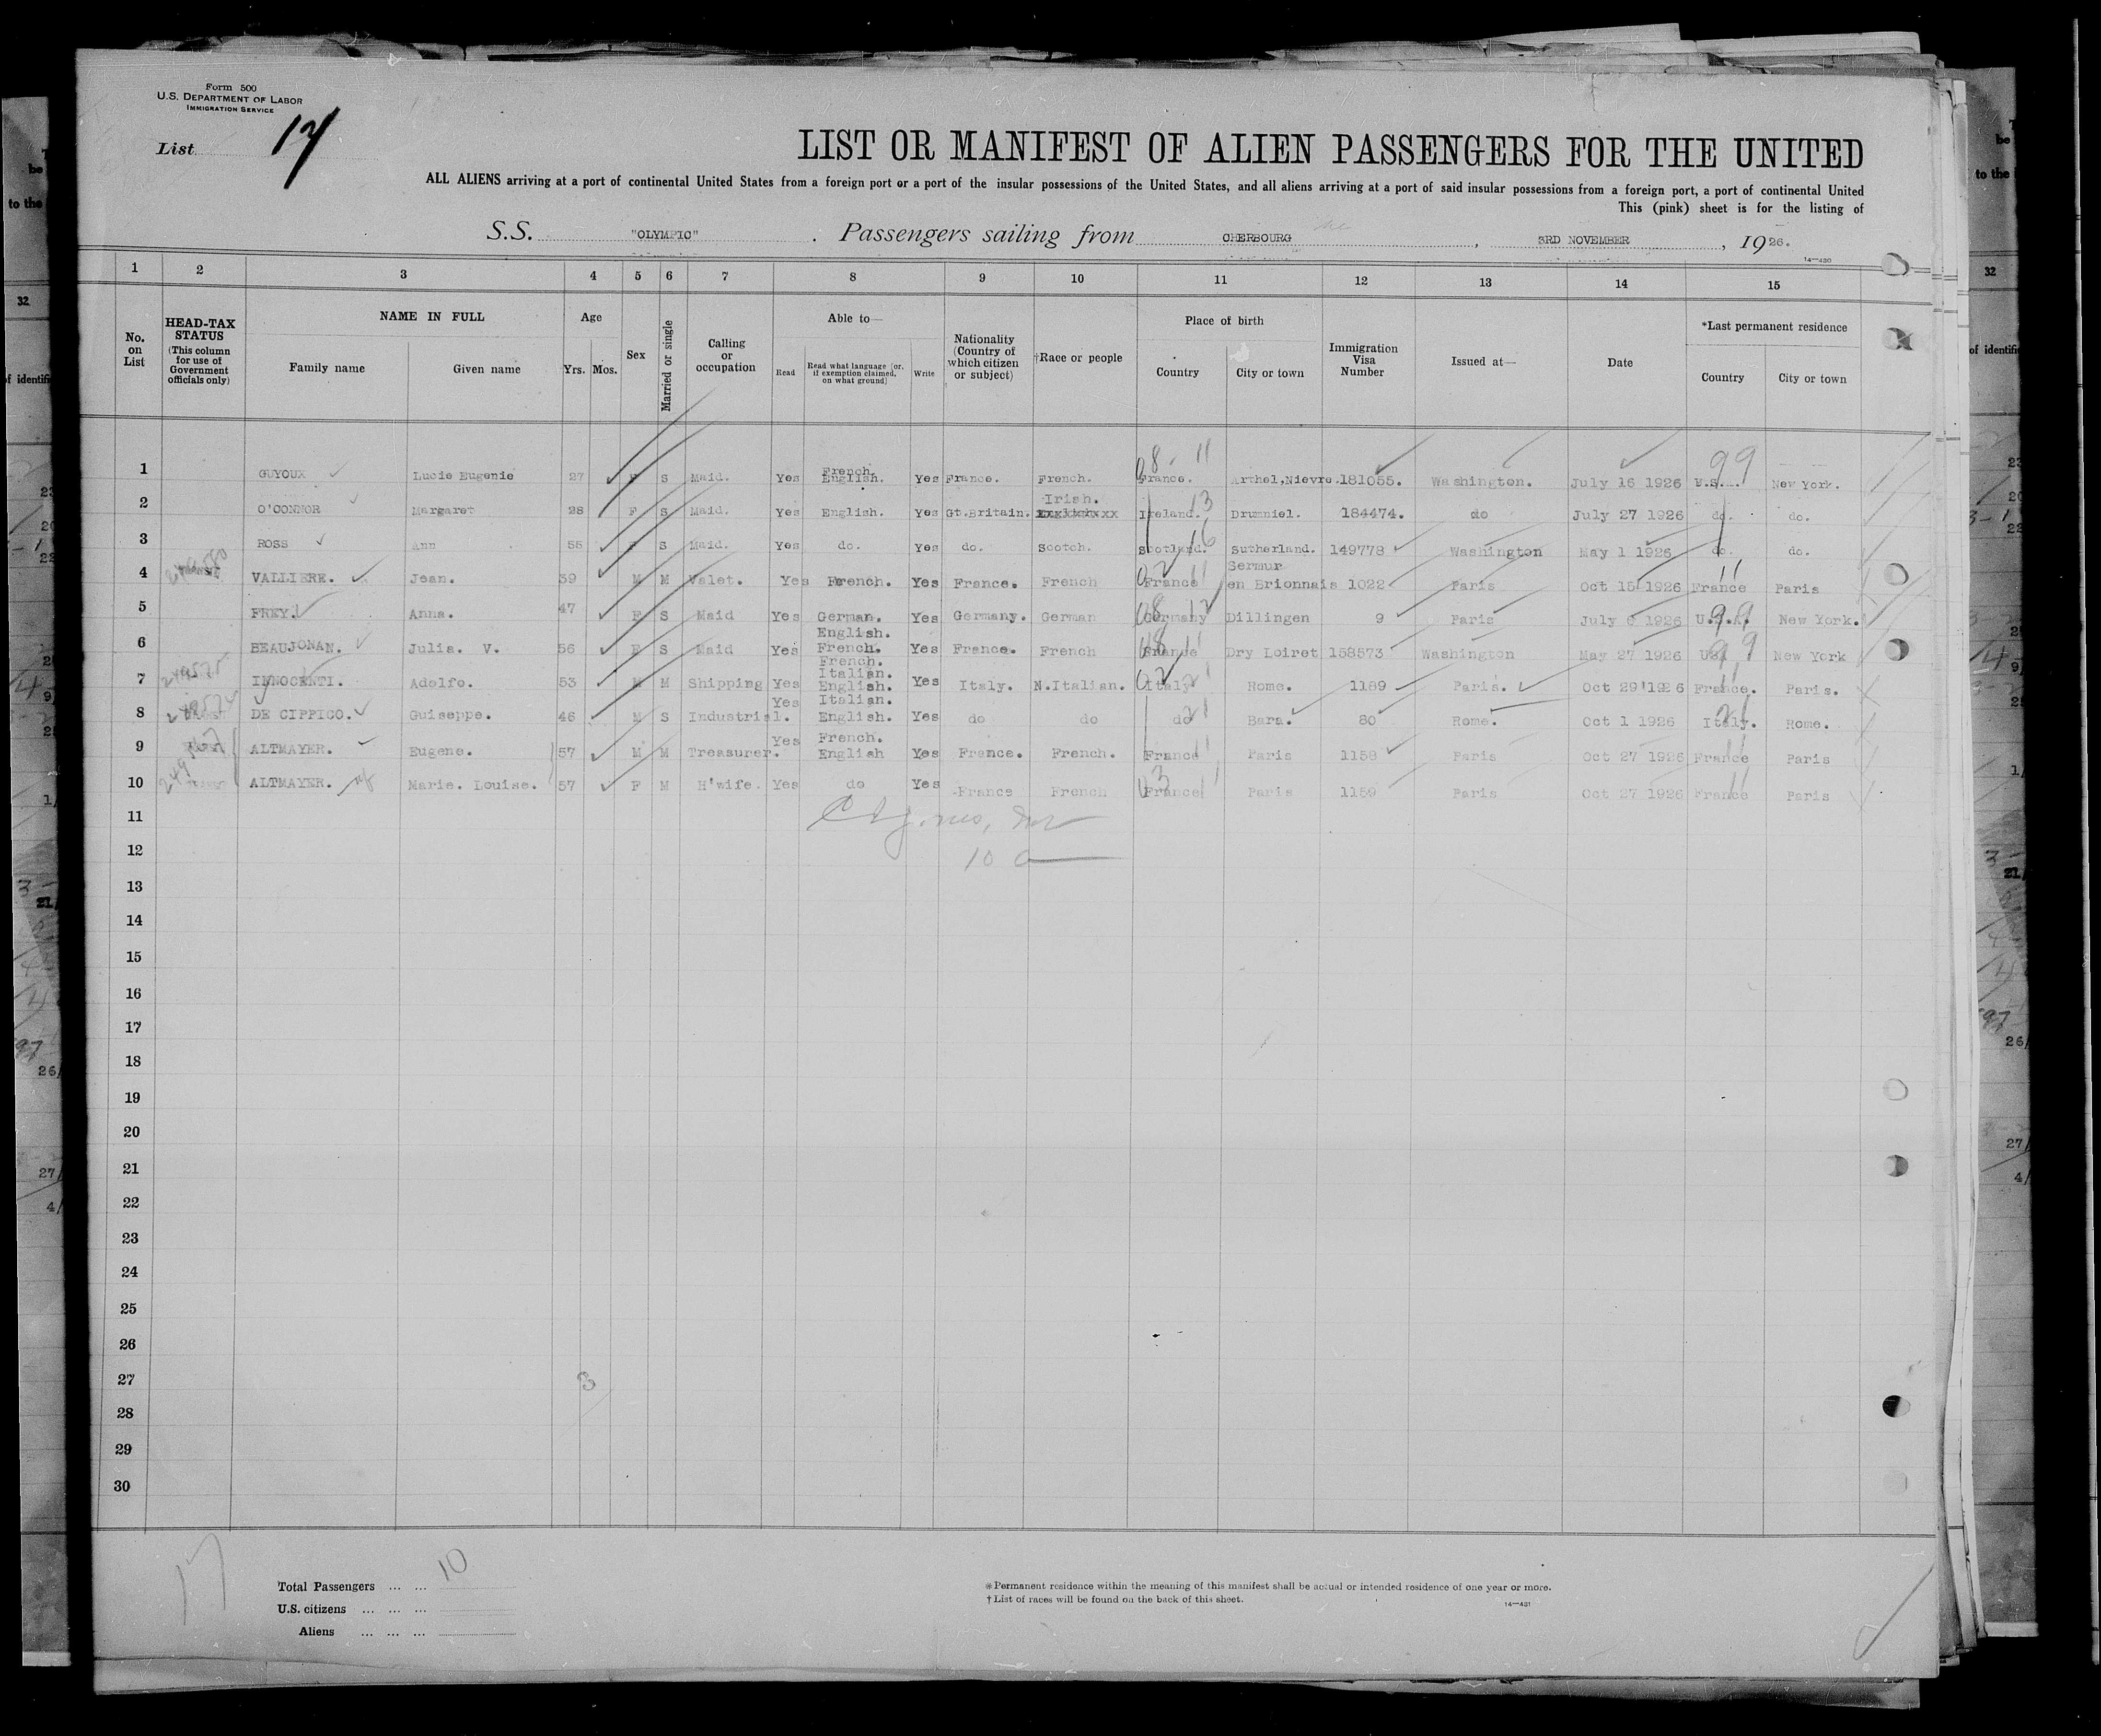 Form 500
U.S. DEPARTMENT OF LABOR
IMMIGRATION SERVICE
List 17
LIST OR MANIFEST OF ALIEN PASSENGERS FOR THE UNITED
ALL ALIENS arriving at a port of continental United States from a foreign port or a port of the insular possessions of the United States, and all aliens arriving at a port of said insular possessions from a foreign port, a port of continental United
This (pink) sheet is for the listing of
S.S. "OLYMPIC". Passengers sailing from CHERBOURG, 3RD NOVEMBER, 1926.
14—430
1 2 3 4 5 6 7 8 9 10 11 12 13 14 15
No. on List
HEAD-TAX STATUS (This column for use of Government officials only)
NAME IN FULL
Family name Given name
Age
Yrs. Mos.
Sex
Married or single
Calling or occupation
Able to—
Read Read what language (or, if exemption claimed, on what ground) Write
Nationality (Country of which citizen or subject)
†Race or people
Place of birth
Country City or town
Immigration Visa Number
Issued at—
Date
*Last permanent residence
Country City or town
1 GUYOUX Lucie Eugenie 27 F S Maid. Yes French. English. Yes France. French. France. Arthel,Nievre. 181055. Washington. July 16 1926 U.S. New York.
2 O'CONNOR Margaret 28 F S Maid. Yes English. Yes Gt.Britain. Irish. Ireland. Drumniel. 184474. do July 27 1926 do. do.
3 ROSS Ann 55 F S Maid. Yes do. Yes do. Scotch. Scotland. Sutherland. 149778 Washington May 1 1926 do. do.
4 VALLIERE. Jean. 39 M M Valet. Yes French. Yes France. French France Sermur en Brionnais 1022 Paris Oct 15 1926 France Paris
5 FREY. Anna. 47 F S Maid Yes German. English. Yes Germany. German Germany Dillingen 9 Paris July 6 1926 U.S.A. New York.
6 BEAUJONAN. Julia. V. 56 F S Maid Yes French. Yes France. French France Dry Loiret 158573 Washington May 27 1926 USA New York
7 INNOCENTI. Adolfo. 53 M M Shipping Yes French. Italian. English. Yes Italy. N.Italian. Italy Rome. 1189 Paris. Oct 29 1926 France. Paris.
8 DE CIPPICO. Guiseppe. 46 M S Industrial. Yes Italian. English. Yes do do do Bara. 80 Rome. Oct 1 1926 Italy. Rome.
9 ALTMAYER. Eugene. 57 M M Treasurer. Yes French. English Yes France. French. France Paris 1158 Paris Oct 27 1926 France Paris
10 ALTMAYER. Marie. Louise. 57 F M H'wife. Yes do Yes France French France Paris 1159 Paris Oct 27 1926 France Paris
11
12
13
14
15
16
17
18
19
20
21
22
23
24
25
26
27
28
29
30
17
Total Passengers ... ... 10
U.S. citizens ... ... ...
Aliens ... ... ...
*Permanent residence within the meaning of this manifest shall be actual or intended residence of one year or more.
†List of races will be found on the back of this sheet.
14—431